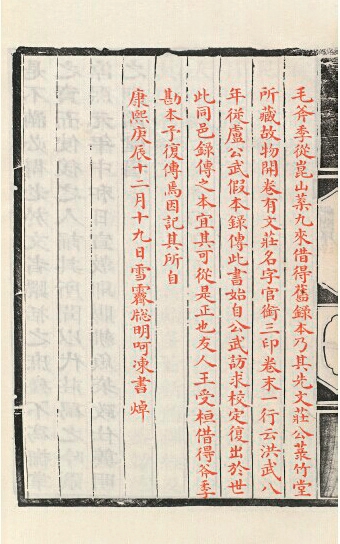 毛斧季從崑山葉九來借得舊録本乃其先文莊公菉竹堂
所藏故物開卷有文莊名字官銜三印卷末一行云洪武八
年從盧公武假本録傳此書始自公武訪求校定復出於世
此同邑録傳之本宜其可從是正也友人王受桓借得斧季
勘本予復傳焉因記其所自
康熙庚辰十二月十九日雪霽聡明呵凍書焯